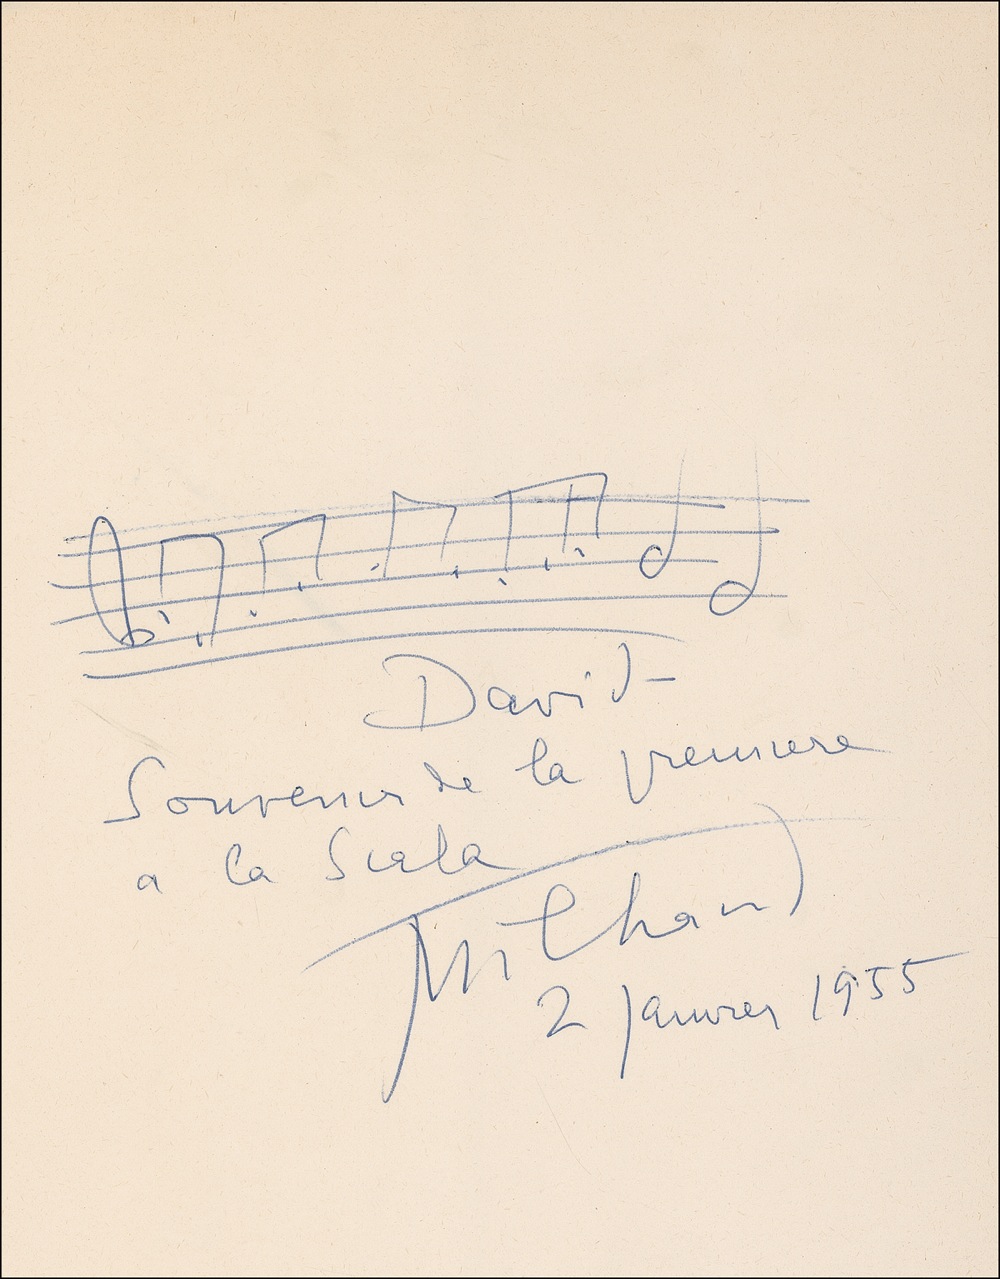 David
Souvenir de la premiere
a la Scala
Milhaud
2 janvier 1955